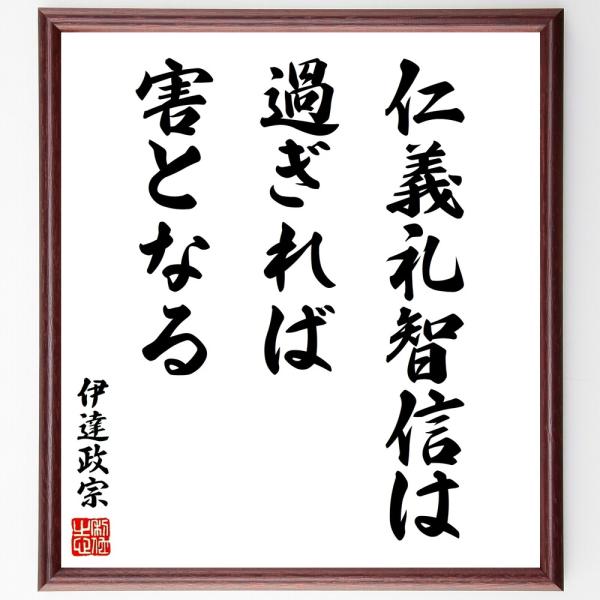 仁義礼智信は
過ぎれば
害となる
伊達政宗